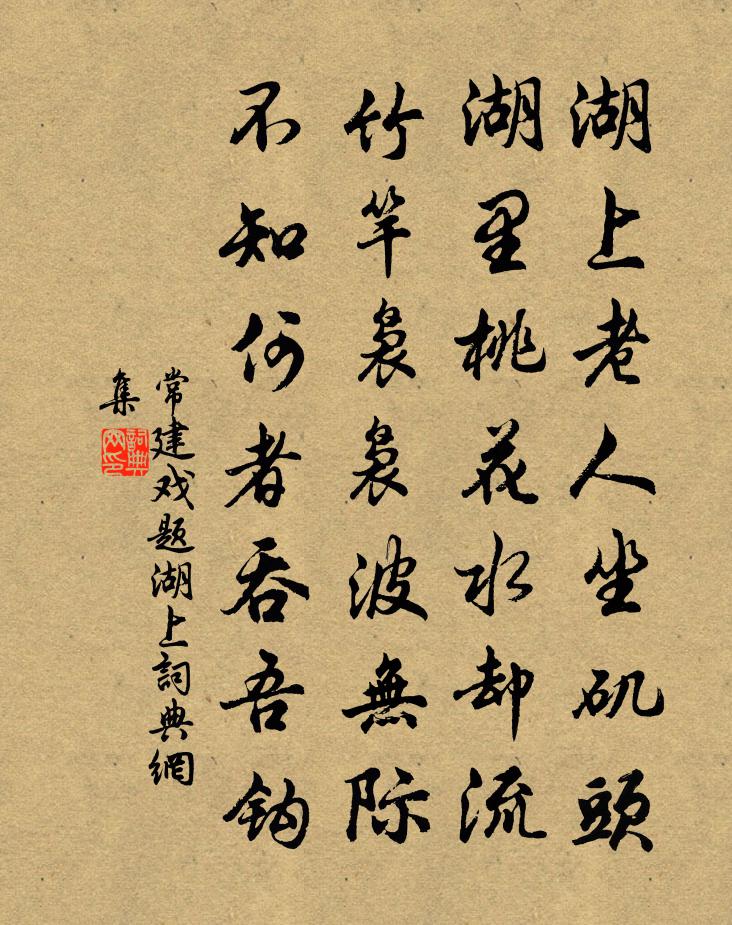 湖上老人坐矶頭
湖里桃花水却流
竹竿裊裊波無际
不知何者吞吾鈎
常建戏题湖上詞典網
集
詞典
网印